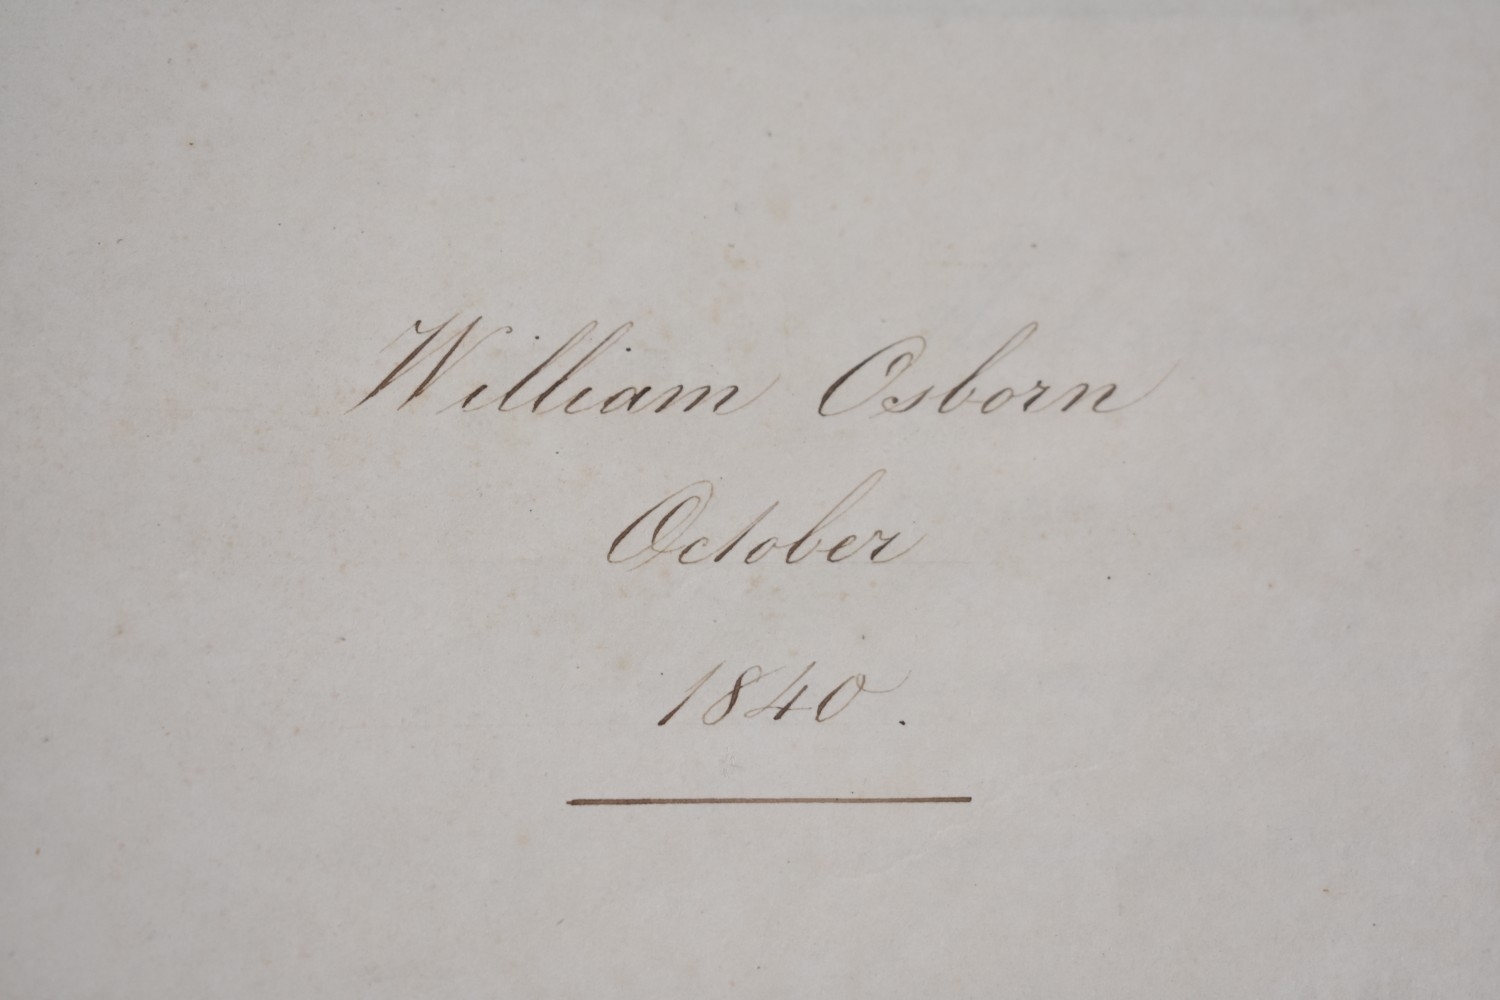 William Osborn
October
1840.